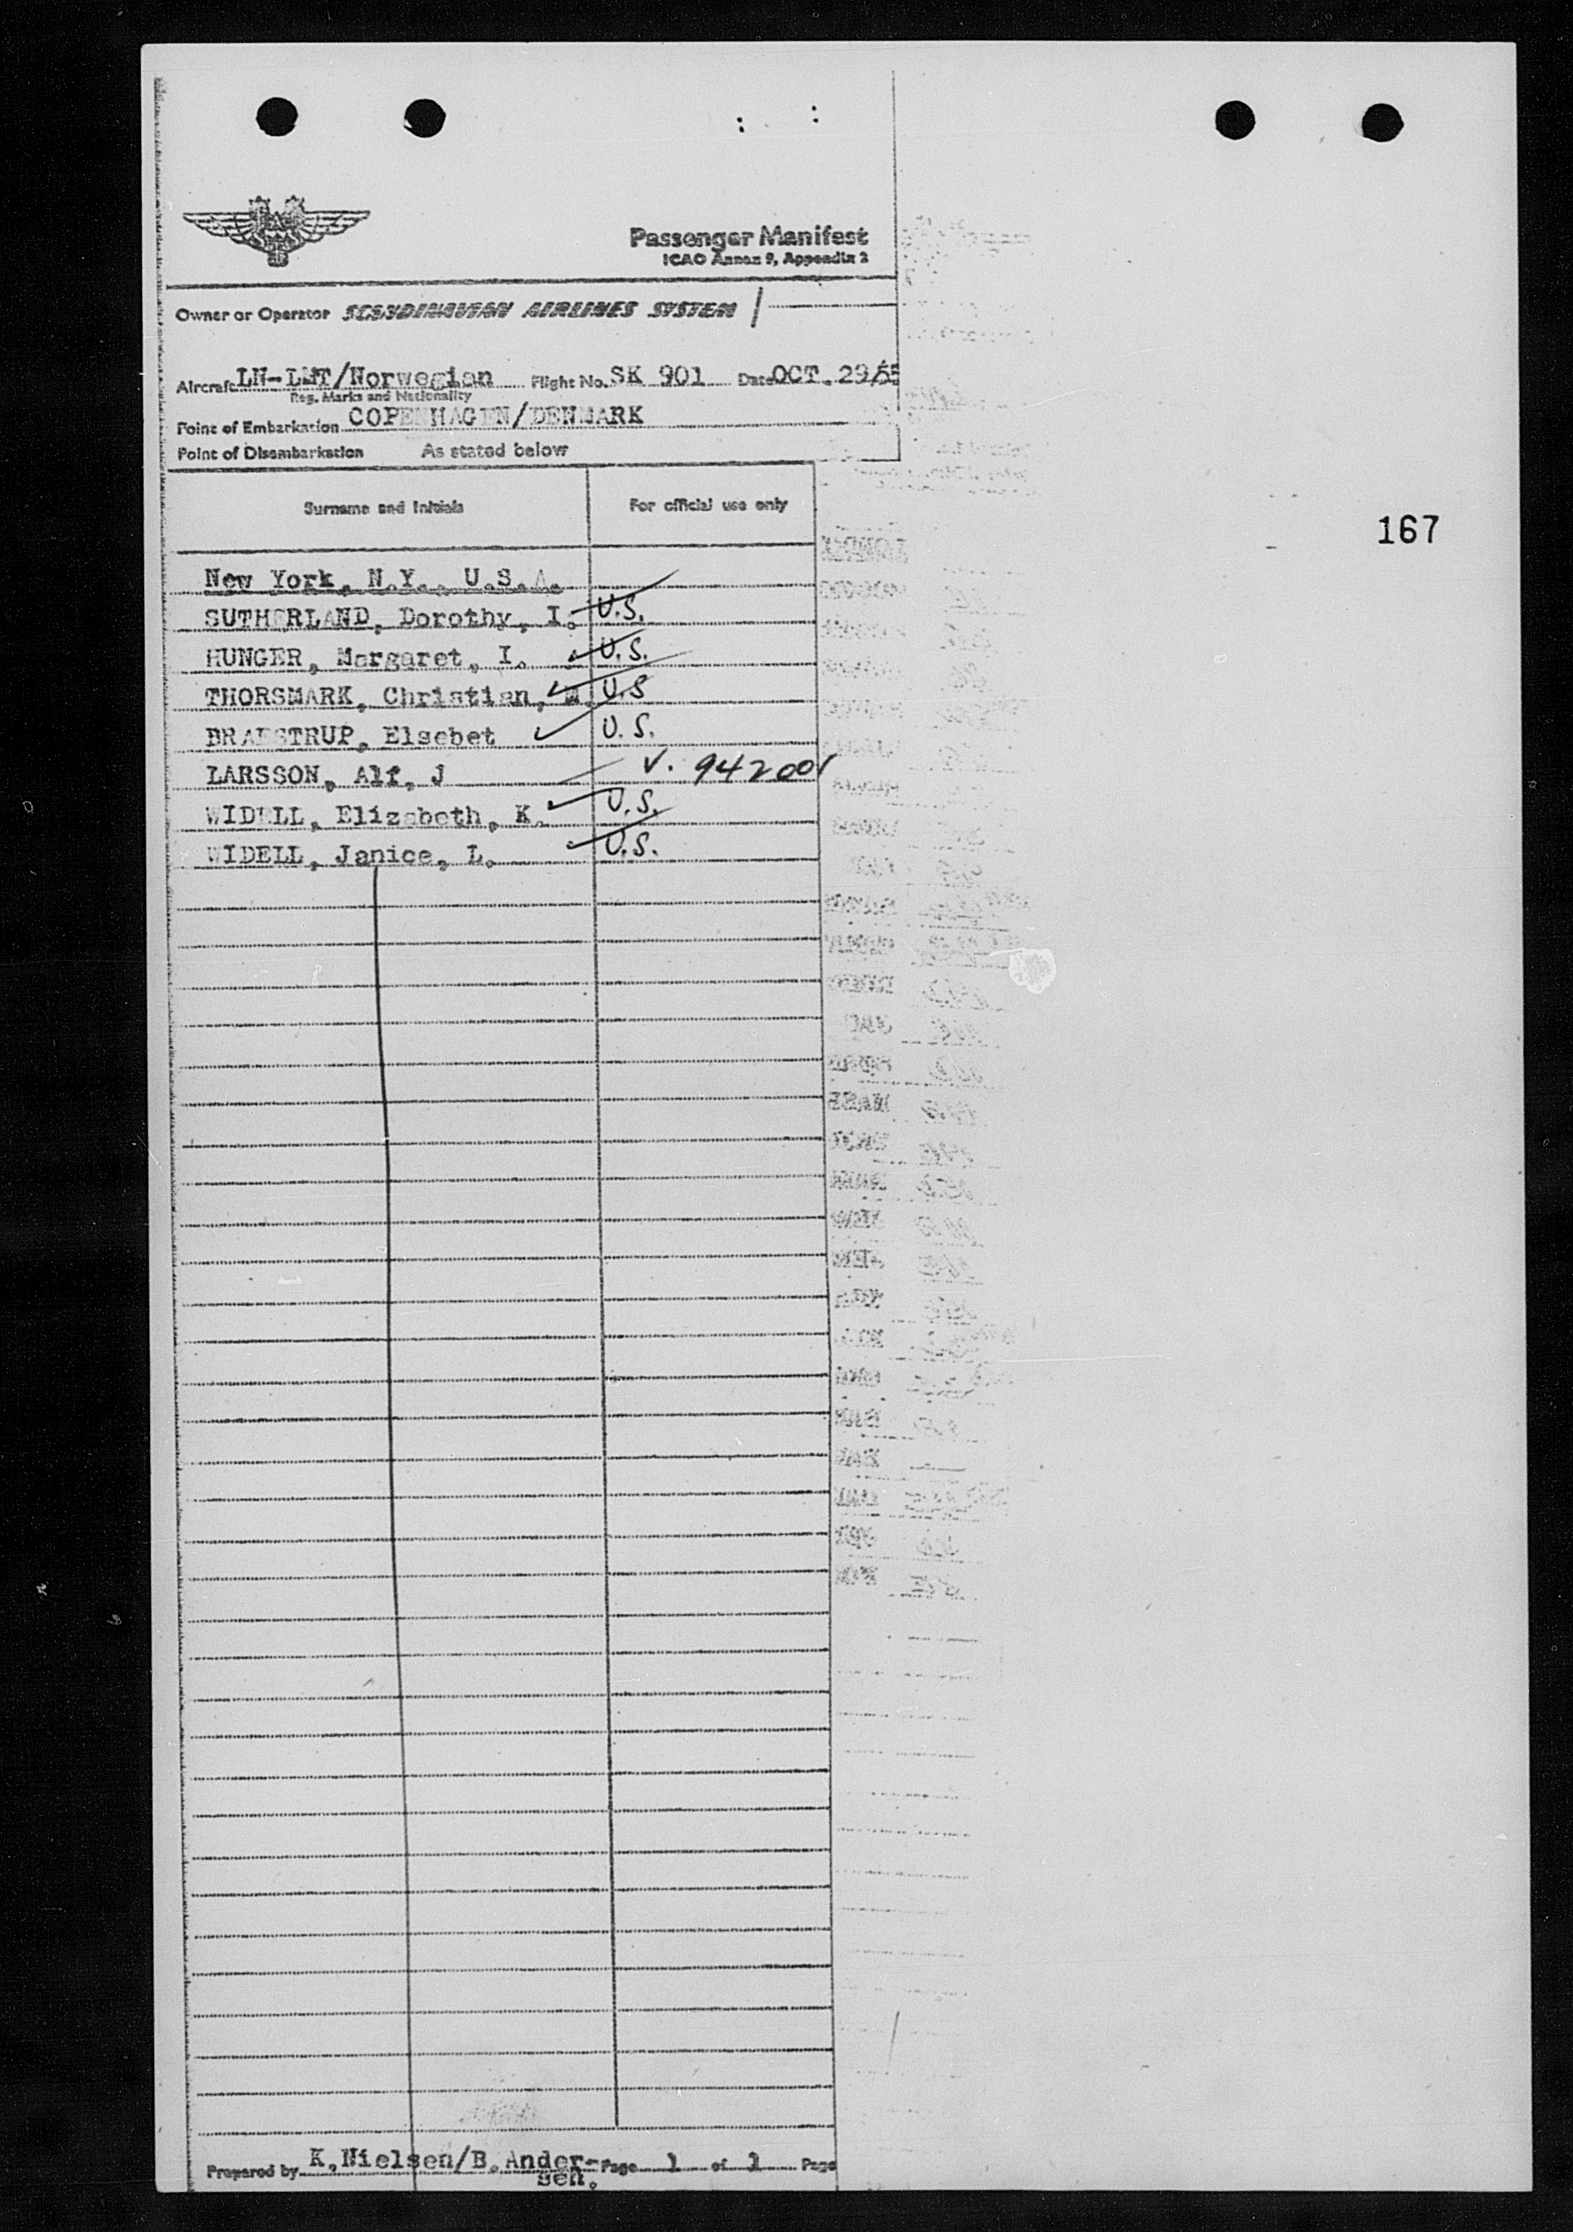 Passenger Manifest
ICAO Annex 9, Appendix 2
Owner or Operator SCANDINAVIAN AIRLINES SYSTEM
Aircraft LN-LMT/Norwegian Flight No. SK 901 Date OCT. 29/55
Reg. Marks and Nationality
Point of Embarkation COPENHAGEN/DENMARK
Point of Disembarkation As stated below
Surname and Initials For official use only
167
New York, N.Y., U.S.A.
SUTHERLAND, Dorothy, I. U.S.
HUNGER, Margaret, I. U.S.
THORSMARK, Christian, M. U.S
BRAESTRUP, Elsebet U.S.
LARSSON, Alf, J V. 942001
WIDELL, Elizabeth, K. U.S.
WIDELL, Janice, L. U.S.
Prepared by K.Nielsen/B.Ander- Page 1 of 1 Page
sen.